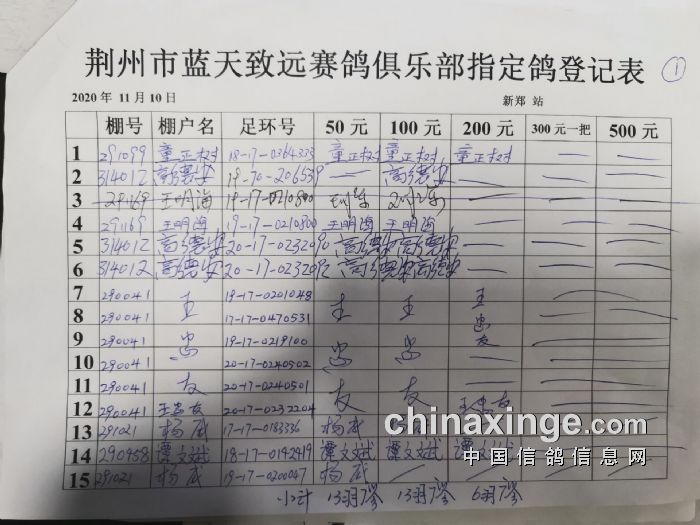 荆州市蓝天致远赛鸽俱乐部指定鸽登记表 ①
2020年 11月10日 新郑 站
棚号 棚户名 足环号 50元 100元 200元 300元一把 500元
1 291099 童正树 18-17-0364333 童正树 童正树 童正树 — —
2 314012 高德安 19-70-206539 — 高德安 — — —
3 29169 王明海 19-17-0210800 — — —
4 291169 王明海 19-17-0210800 王明海 王明海 — — —
5 314012 高德安 20-17-0232090 高德安 高德安 — — —
6 314012 高德安 20-17-02320 高德安 高德安 — — —
7 290041 王 19-17-0201048 王 王 王
8 290041 17-17-0470531 忠
9 290041 忠 19-17-0219100 忠 忠 友
10 290041 20-17-0240502 —
11 290041 友 20-17-0240501 友 友 —
12 290041 王忠友 20-17-0232204 王忠友
13 291021 杨威 17-17-0183336 杨威
14 290958 谭文斌 18-17-0192919 谭文斌 谭文斌 谭文斌
15 291021 杨威 19-17-0200047 杨威
小计 13羽 13羽 6羽
chinaxinge.com
中国信鸽信息网